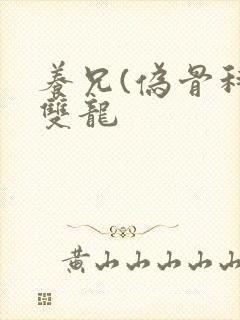 養兄(偽骨科
雙龍
黃山山山山山